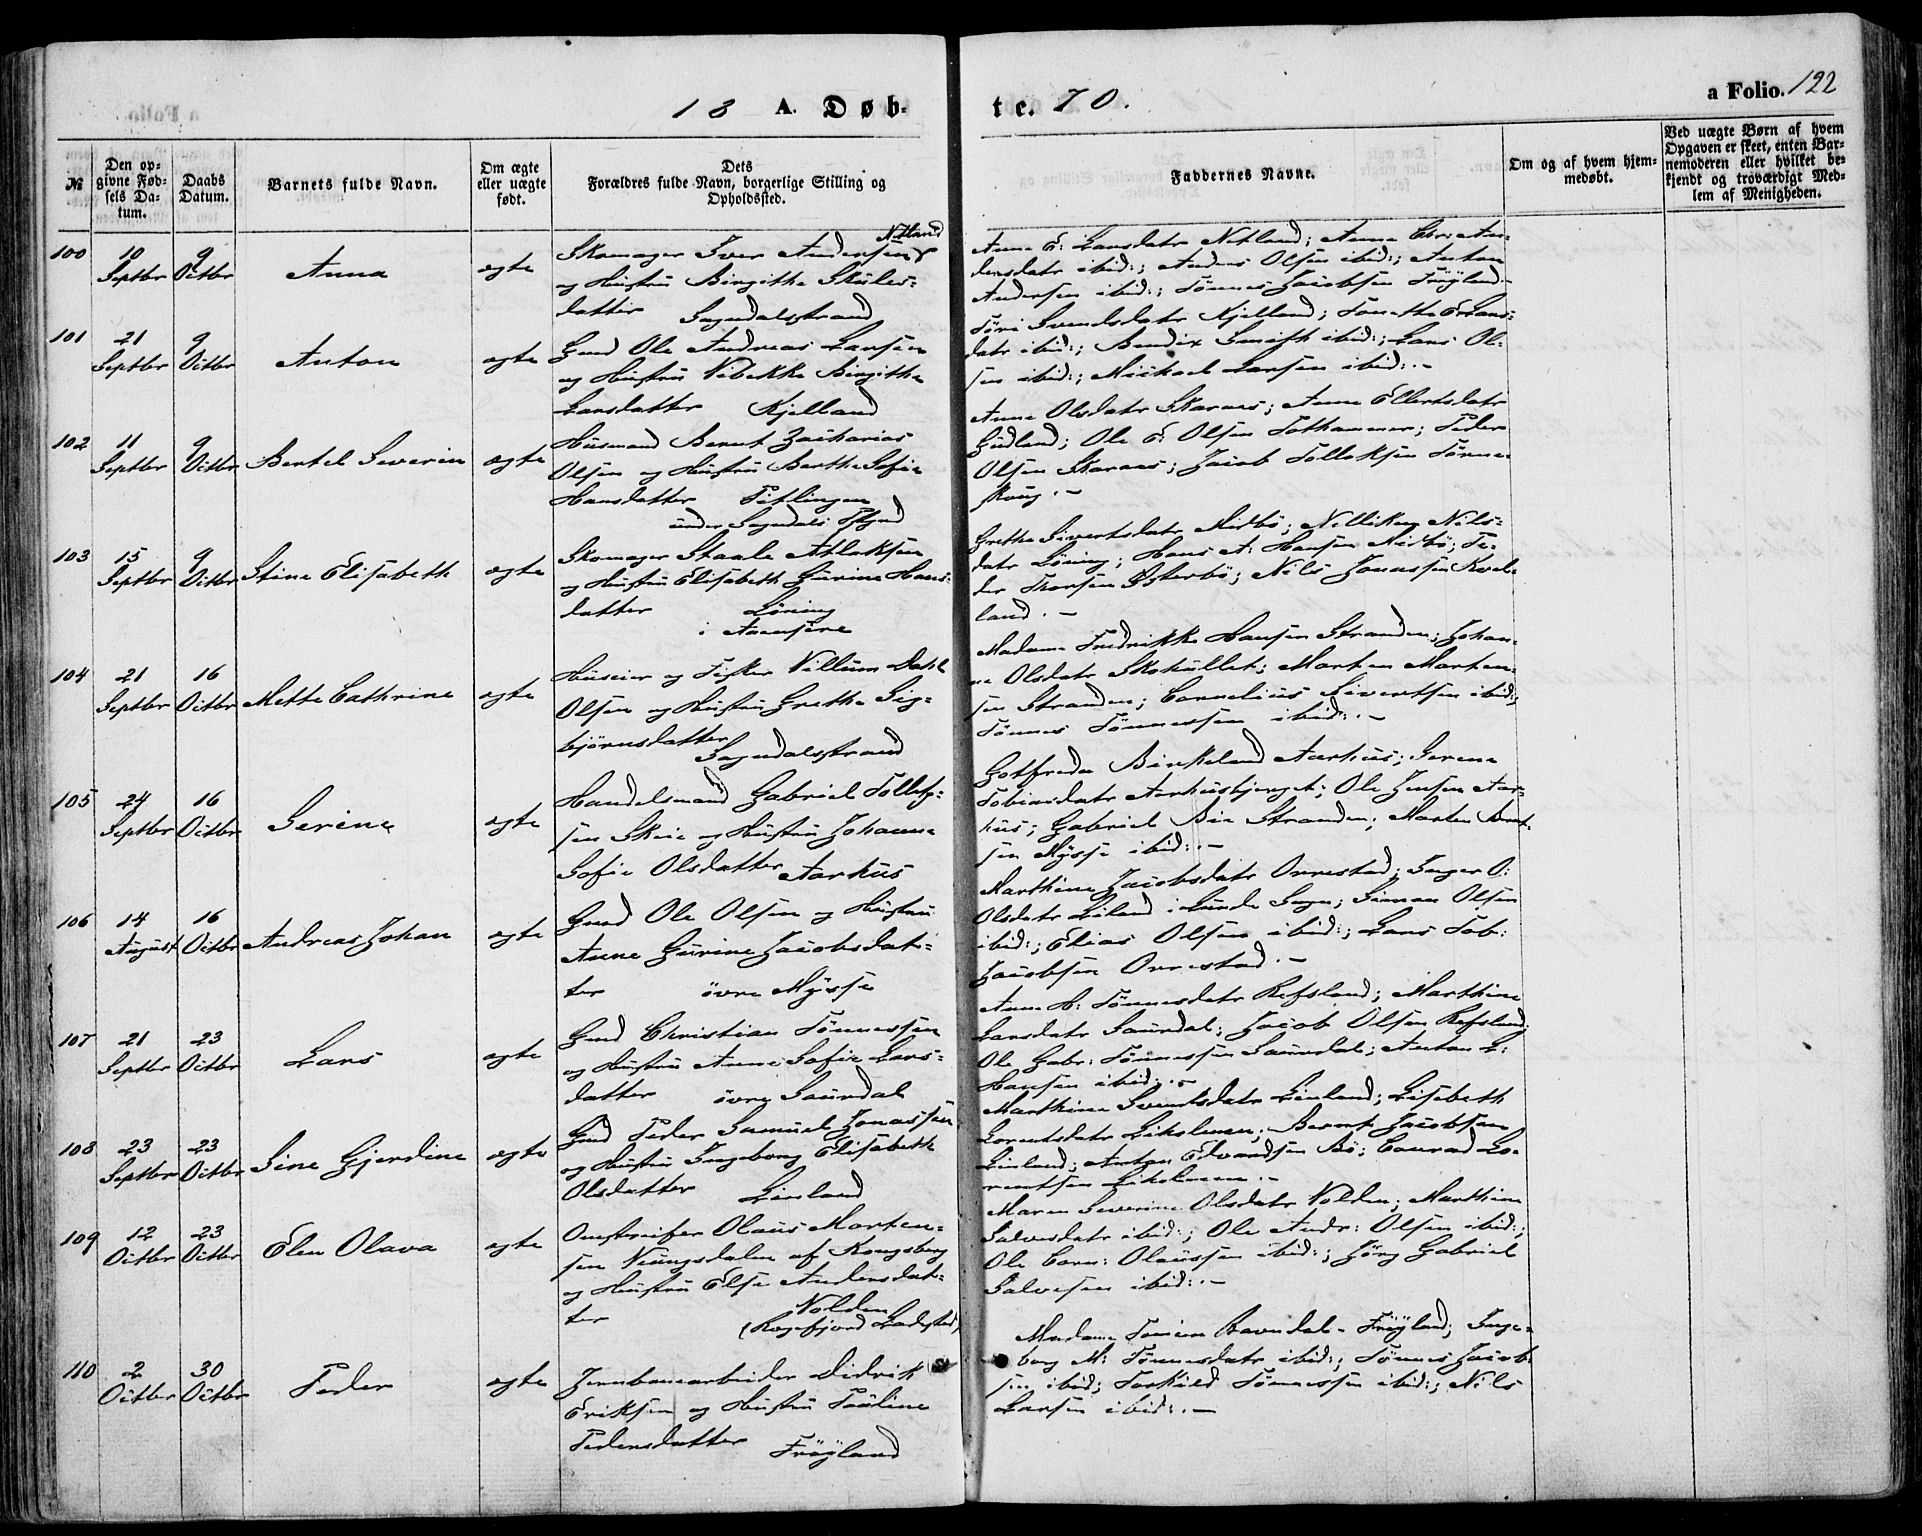 18 A. Døb-
te. 70.
a Folio. 122
№
Den op-
givne Fød-
sels Da-
tum.
Daabs
Datum.
Barnets fulde Navn.
Om ægte
eller uægte
født.
Dets
Forældres fulde Navn, borgerlige Stilling og
Opholdssted.
Faddernes Navne.
Om og af hvem hjem-
medøbt.
Ved uægte Børn af hvem
Opgaven er skeet, enten Bar-
nemoderen eller hvilket be-
kjendt og troværdigt Med-
lem af Menigheden.
100 10 Septbr 9 Octbr Anna ægte
Skomager Iver Andersen Netland
og Hustru Birgithe Skules-
datter Sogndalsstrand
Anne E: Larsdatr Netland; Anne Chr: An-
dersdatr ibid:; Anders Olsen ibid:; Anton
Andersen ibid:; Tönnes Jacobsen Fröyland.-
101 21 Septbr 9 Octbr Anton ægte
Gmd Ole Andreas Larsen
og Hustru Vibekke Birgithe
Larsdatter Kjelland
Töri Svendsdatr Kjelland; Tonette E Lars-
datr ibid:; Bendix Smith ibid:; Lars Ol-
sen ibid:; Mickael Larsen ibid:.-
102 11 Septbr 9 Octbr Bertel Severin ægte
Husmand Bernt Zacharias
Olsen og Hustru Berthe Sofie
Hansdatter Pitlingen
under Sogndals Pstgrd
Anne Olsdatr Skarnes; Anne Ellertsdatr
Gudland; Ole E: Olsen Tothammer; Peder
Olsen Skarnes; Jacob Tollaksen Tönne-
skoug.-
103 15 Septbr 9 Octbr Stine Elisabeth ægte
Skomager Staale Atlaksen
og Hustru Elisabeth Gurine Hans-
datter Löning
i Aamsire
Grethe Sivertsdatr Midbö; Nilliken Nils-
datr Löning; Hans A: Hansen Midbö; Pe-
der Thorsen Österbö; Nils Jonassen Kvel-
land.-
104 21 Septbr 16 Octbr Mette Cathrine ægte
Huseier og Fisker Villum Dahl
Olsen og Hustru Grethe Sig-
björnsdatter
Sogndalsstrand
Madame Fredrikke Hansen Stranden; Johan-
ne Olsdatr Skohullet; Morten Morten-
sen Stranden; Cornelius Sivertsen ibid:;
Tönnes Tönnessen ibid:.-
105 24 Septbr 16 Octbr Serine ægte
Handelsmand Gabriel Tollef-
sen Skeie og Hustru Johanne
Sofie Olsdatter Aarhus
Gotfreda Birkeland Aarhus; Serene
Tobiasdatr Aarhusbjerget; Ole Jensen Aar-
hus; Gabriel Bie Stranden; Morten Bernt-
sen Mysse ibid:.-
106 14 August 16 Octbr Andreas Johan ægte
Gmd Ole Olsen og Hustru
Anne Gurine Jacobsdat-
ter övre Mysse
Marthine Jacobsdatr Orrestad; Inger O:
Olsdatr Eiland i Lunde Sogn; Simon Olsen
ibid:; Elias Olsen ibid:; Lars Tob:
Jacobsen Orrestad.-
107 21 Septbr 23 Octbr Lars ægte
Gmd Christian Tönnessen
og Hustru Anne Sofie Lars-
datter övre Saurdal
Anne H: Tönnesdatr Refsland; Marthine
Larsdatr Saurdal; Jacob Olsen Refsland;
Ole Gabr: Tönnessen Saurdal; Anton L:
Hansen ibid:.-
108 23 Septbr 23 Octbr Sine Gjerdine ægte
Gmd Peder Samuel Jonassen
og Hustru Ingeborg Elisabeth
Olsdatter Linland
Marthine Svendsdatr Linland; Lisebeth
Lorentsdatr Eikelmen; Bernt Jacobsen
Linland; Anton Edvardsen Bö; Conrad Lo-
rentsen Eikelmen.-
109 12 Octbr 23 Octbr Elen Olava ægte
Opsynsmand Olaus Morten-
sen Nungsdalen af Kongsberg
og Hustru Else Andersdat-
ter Volden
(Rægefjord Ladested)
Maren Severine Olsdatr Volden; Marthine
Salvesdatr ibid:; Ole Andr: Olsen ibid:;
Ole Corn: Olaussen ibid:; Jörg Gabriel
Salvesen ibid:.-
110 2 Octbr 30 Octbr Peder ægte
Jernbanearbeider Didrik
Eriksen og Hustru Pauline
Pedersdatter Fröyland
Madame Tomine Ravndal - Fröyland; Inge-
borg M: Tönnesdatr ibid:; Tönnes Jacob-
sen ibid; Torkild Tönnessen ibid:; Nils
Larsen ibid:.-